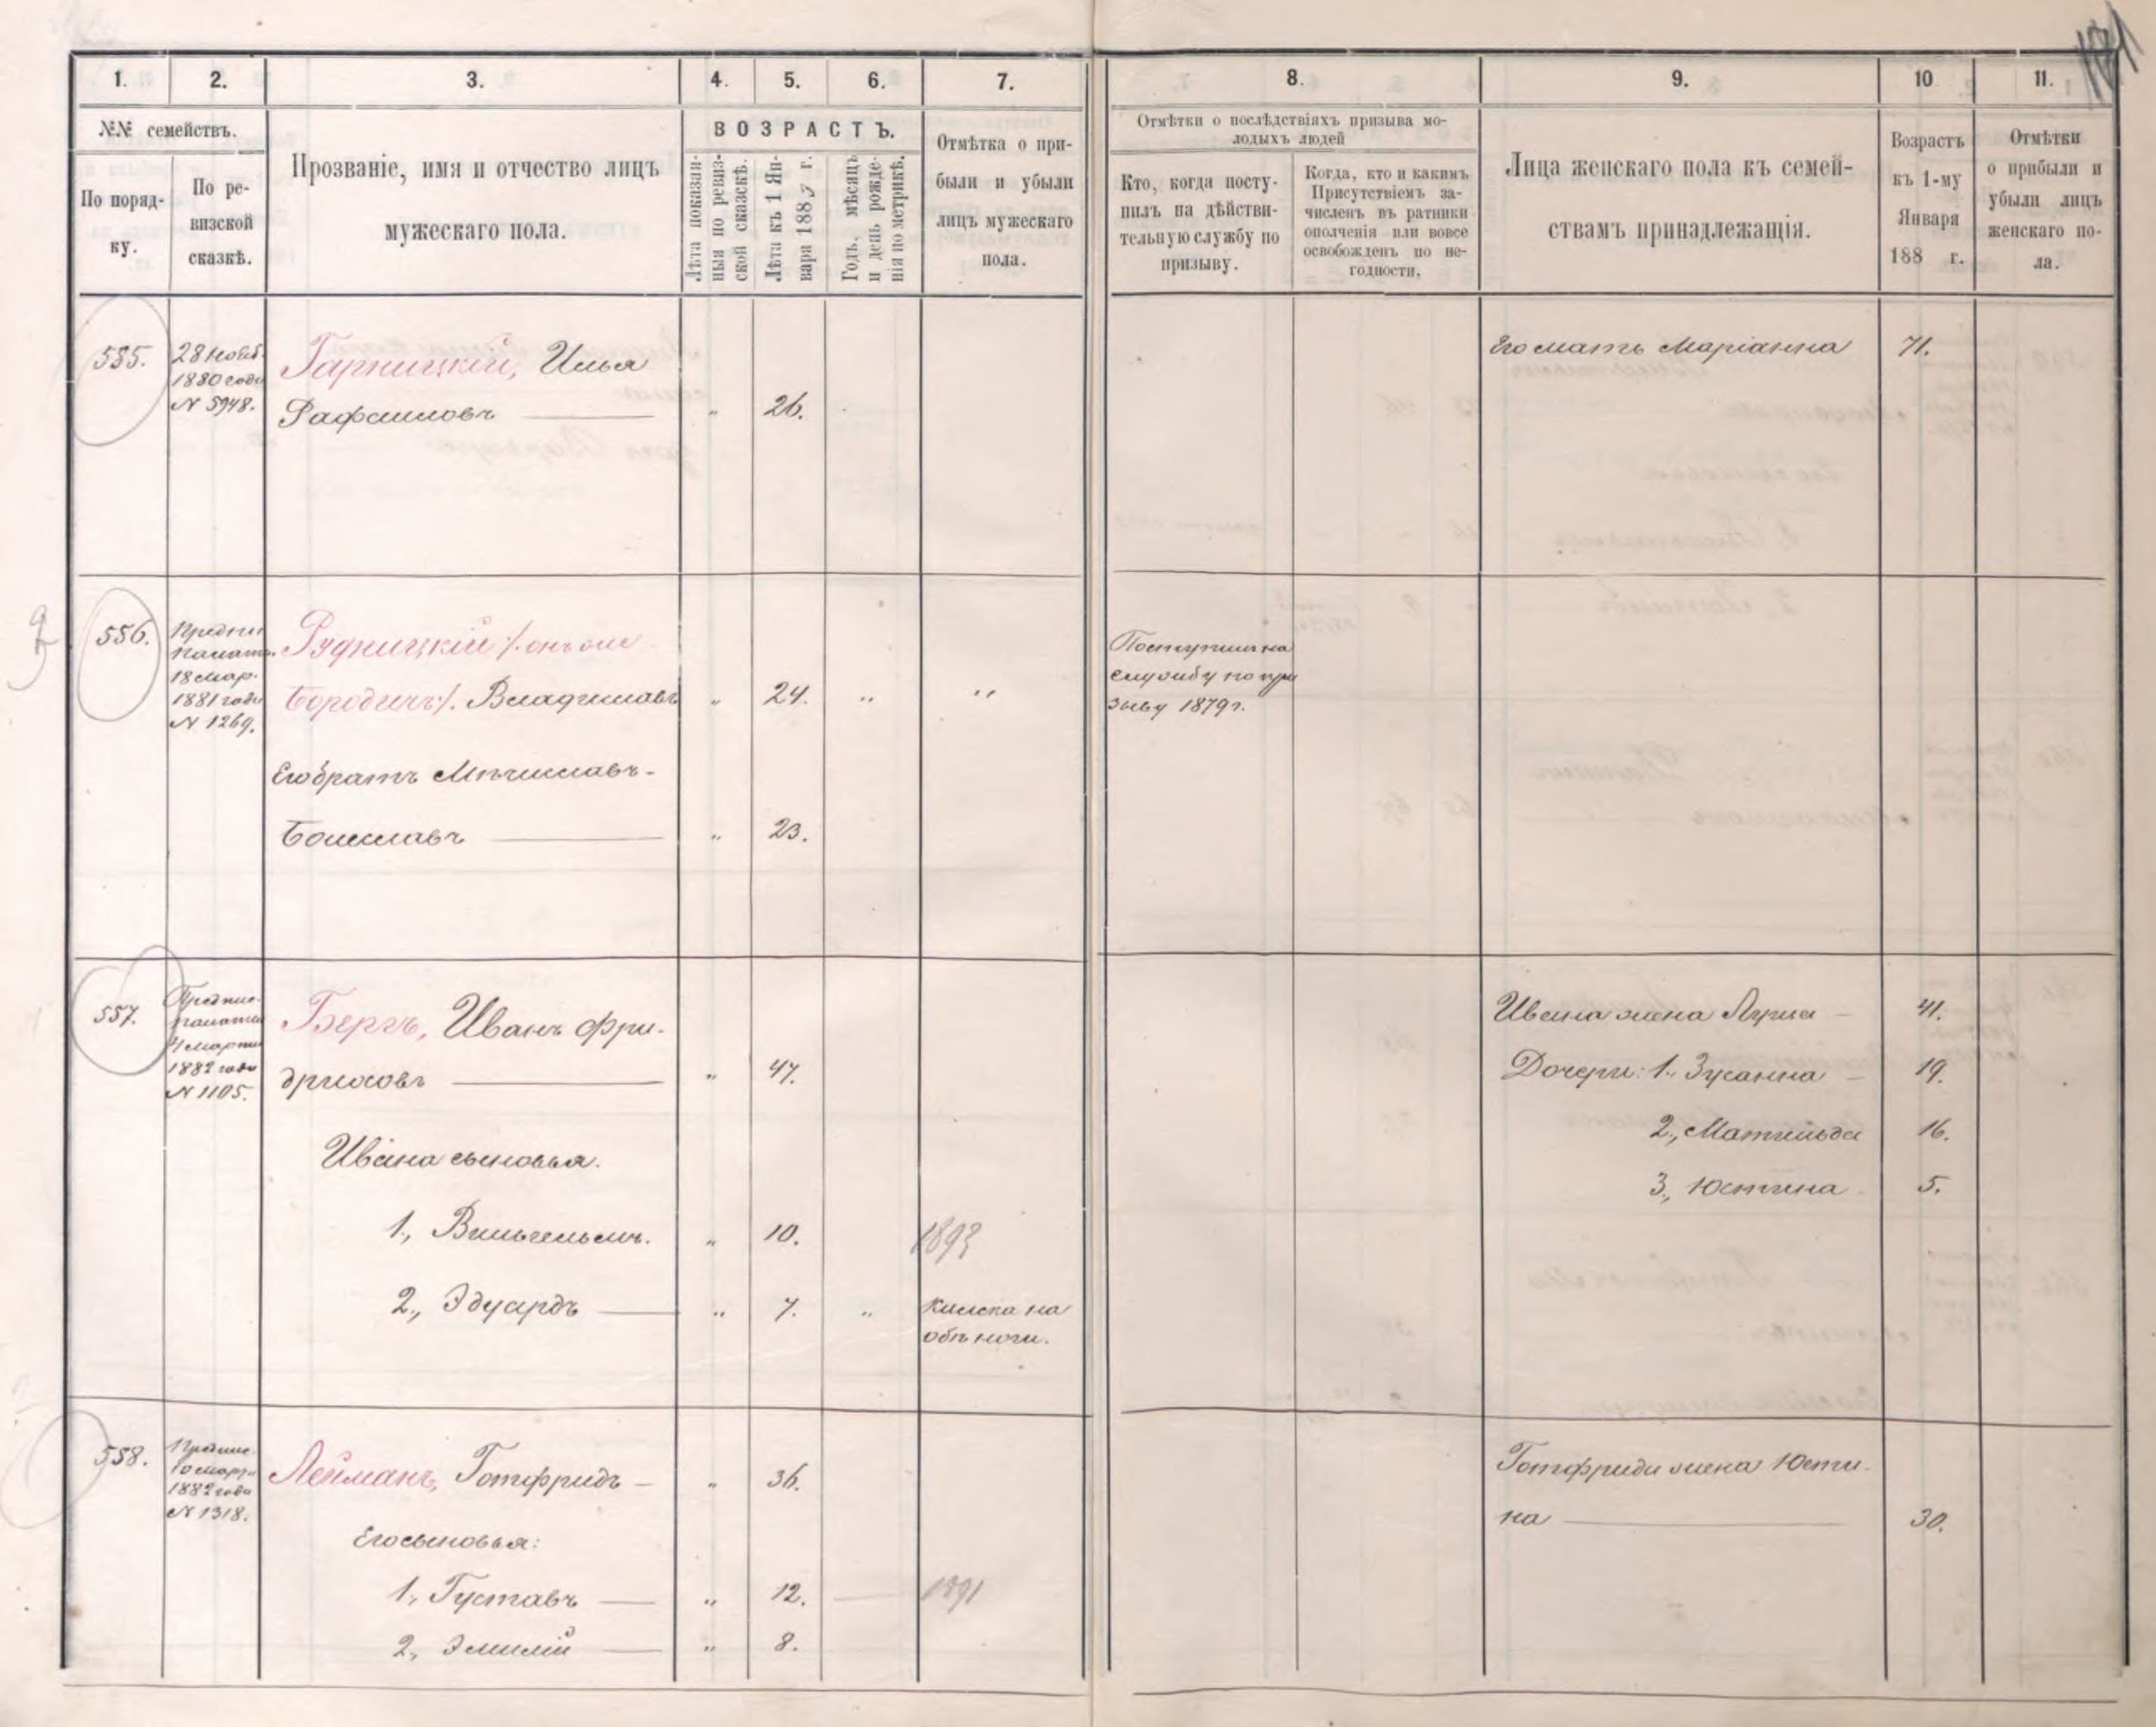 1.
2.
3.
4.
5.
6.
7.
8.
9.
10
11.
№№ семействъ.
По поряд-
ку.
По ре-
визской
сказкѣ.
Прозваніе, имя и отчество лицъ
мужескаго пола.
ВОЗРАСТЪ.
Лѣта показан-
ныя по ревиз-
ской сказкѣ.
Лѣта къ 1 Ян-
варя 1883 г.
Годъ, мѣсяцъ
и день рожде-
нія по метрикѣ.
Отмѣтка о при-
были и убыли
лицъ мужескаго
пола.
Отмѣтки о послѣдствіяхъ призыва мо-
лодыхъ людей
Кто, когда посту-
пилъ на дѣйстви-
тельную службу по
призыву.
Когда, кто и какимъ
Присутствіемъ за-
численъ въ ратники
ополченія или вовсе
освобожденъ по не-
годности.
Лица женскаго пола къ семей-
ствамъ принадлежащія.
Возрастъ
къ 1-му
Января
188 г.
Отмѣтки
о прибыли и
убыли лицъ
женскаго по-
ла.
585.
28 Нояб.
1880 года
N 5948.
Гарницкій, Илья
Рафаиловъ
"
26.
Его мать Маріанна
71.
556.
Предпи.
палаты
18 мар.
1881 года
N 1269.
Рудницкій /: онъ же
Бородичъ :/. Владиславъ
"
24.
"
"
Поступилъ на
службу по при
зыву 1879 г.
Его братъ Мѣчиславъ-
Болиславъ
"
23.
557.
Предпис.
палаты
4 марта
1882 года
N 1105.
Бергъ, Иванъ Фри-
дриховъ
"
47.
Ивана жена Луиза
41.
Дочери: 1., Зузанна
19.
2., Матильда
16.
3., Юстина
5.
Ивана сыновья.
1., Вильгельмъ.
"
10.
1893
2., Эдуардъ
"
7.
"
Калека на
обѣ ноги.
558.
Предпис.
10 марта
1882 года
N 1318.
Лейманъ, Готфридъ
"
36.
Готфрида жена Юсти-
на
30.
Его сыновья:
1., Густавъ
"
12.
1891
2., Эмилій
"
8.